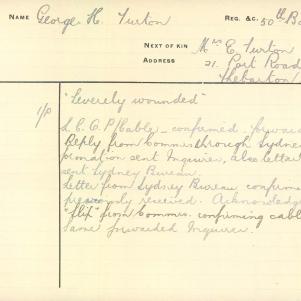 NAME George H. Turton REG. &C. 50th Ba
NEXT OF KIN Mrs E. Turton
ADDRESS 21. Port Road
Thebarton
1/p "Severely wounded"
Cable confirmed forwar
Reply from Commis through Sydne
formation sent Inquirer, also letter
sent Sydney Bureau.
Letter from Sydney Bureau confirm
previously received. Acknowledg
"flix" from Commis. confirming cabl
same forwarded Inquirer.